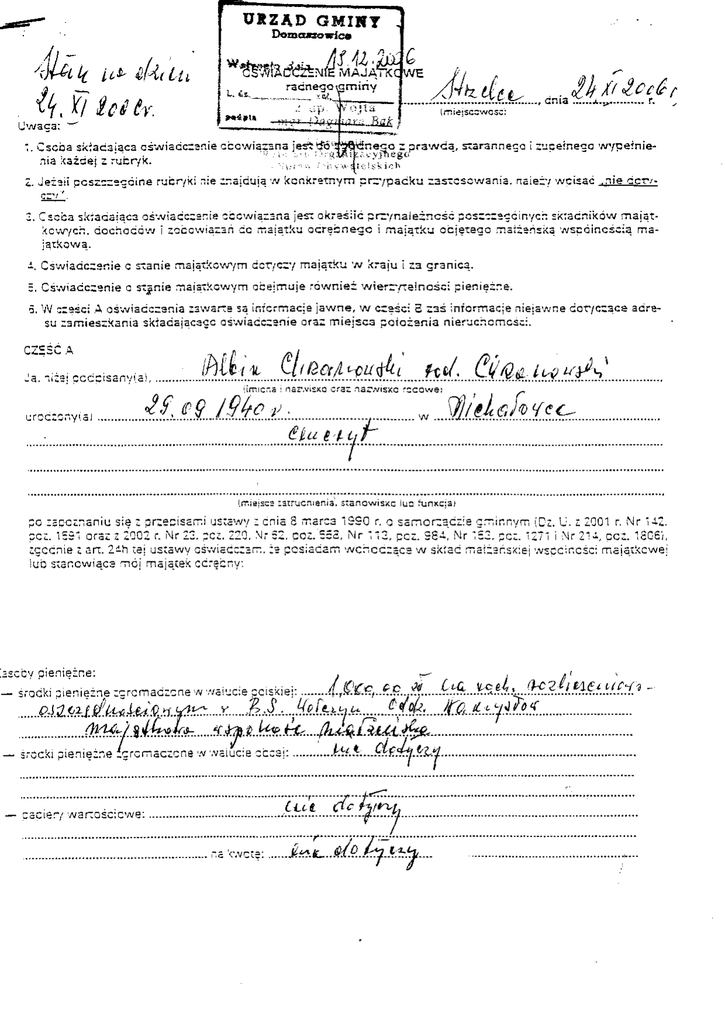 URZĄD GMINY
Domaszowice
Wpłynęło dnia 13.12.2006
OŚWIADCZENIE MAJĄTKOWE
radnego gminy
L. dz. zał.
z up. Wójta
podpis mgr Dagmara Bąk
Stan na dzień
24. XI 2006r.
Strzelce, dnia 24 XI 2006 r.
(miejscowość)
Uwaga:
1. Osoba składająca oświadczenie obowiązana jest do zgodnego z prawdą, starannego i zupełnego wypełnie-
nia każdej z rubryk.
2. Jeżeli poszczególne rubryki nie znajdują w konkretnym przypadku zastosowania, należy wpisać „nie doty-
czy".
3. Osoba składająca oświadczenie obowiązana jest określić przynależność poszczególnych składników mająt-
kowych, dochodów i zobowiązań do majątku odrębnego i majątku objętego małżeńską wspólnością ma-
jątkową.
4. Oświadczenie o stanie majątkowym dotyczy majątku w kraju i za granicą.
5. Oświadczenie o stanie majątkowym obejmuje również wierzytelności pieniężne.
6. W części A oświadczenia zawarte są informacje jawne, w części B zaś informacje niejawne dotyczące adre-
su zamieszkania składającego oświadczenie oraz miejsca położenia nieruchomości.
CZĘŚĆ A
Ja, niżej podpisany(a), Albin Chranowski rod. Chranowski
(imiona i nazwisko oraz nazwisko rodowe)
urodzony(a) 29.09 1940 r. w Michałowce
emeryt
(miejsce zatrudnienia, stanowisko lub funkcja)
po zapoznaniu się z przepisami ustawy z dnia 8 marca 1990 r. o samorządzie gminnym (Dz. U. z 2001 r. Nr 142,
poz. 1591 oraz z 2002 r. Nr 23, poz. 220, Nr 62, poz. 558, Nr 113, poz. 984, Nr 153, poz. 1271 i Nr 214, poz. 1806),
zgodnie z art. 24h tej ustawy oświadczam, że posiadam wchodzące w skład małżeńskiej wspólności majątkowej
lub stanowiące mój majątek odrębny:
Zasoby pieniężne:
— środki pieniężne zgromadzone w walucie polskiej: zł na rach. rozliczeniowo-
oszczędnościowym w B.S. Wołczyn Oddz. Namysłów
majątkowa wspólność małżeńska
— środki pieniężne zgromadzone w walucie obcej: nie dotyczy
— papiery wartościowe: nie dotyczy
na kwotę: nie dotyczy